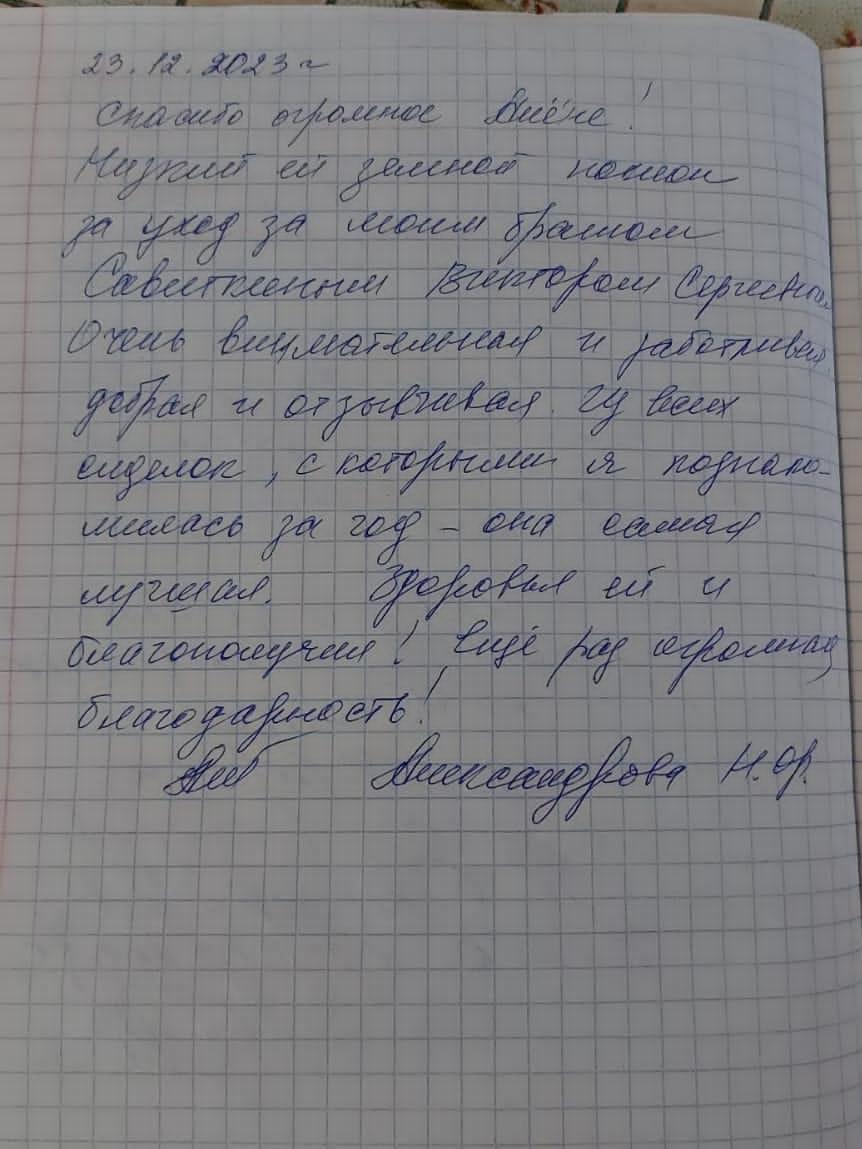 23.12.2023 г
Спасибо огромное Алёне!
Низкий ей земной поклон
за уход за моим братом
Виктором
Очень внимательная и заботливая,
добрая и отзывчивая. Из всех
сиделок, с которыми я познако-
милась за год – она самая
лучшая. Здоровья ей и
благополучия! Ещё раз огромная
благодарность!
Александрова Н.Ф.